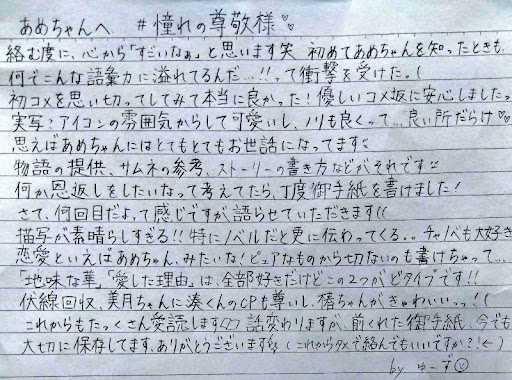 あめちゃんへ #憧れの尊敬様♡♡
絡む度に、心から「すごいなぁ」と思います笑 初めてあめちゃんを知ったときも、
何てこんな語彙力に溢れてるんだ…!!って衝撃を受けた。(
初コメを思い切ってしてみて本当に良かった!優しいコメ返に安心しましたっ
実写?アイコンの雰囲気からして可愛いし、ノリも良くって…良い所だらけ♡
思えばあめちゃんにはとてもとてもお世話になってます
物語の提供、サムネの参考、ストーリーの書き方などがそれです
何か恩返しをしたいなって考えてたら、丁度御手紙を書けました!
さて、何回目だよって感じですが、語らせていただきます((
描写が素晴らしすぎる!!特にノベルだと更に伝わってくる。。チャノベも大好き
恋愛といえばあめちゃん、みたいな!ピュアなものから切ないのも書けちゃって…
「地味な華」「愛した理由」は、全部好きだけどこの2つがどタイプです!!
伏線回収、美月ちゃんに湊くんのCPも尊いし、椿ちゃんがきゃわいいっっ!(
これからもたっくさん愛読します♡♡ 話変わりますが、前くれた御手紙、今でも
大切に保存してます、ありがとうございます(これからタメで絡んでもいいですか?!←)
by ゆーず